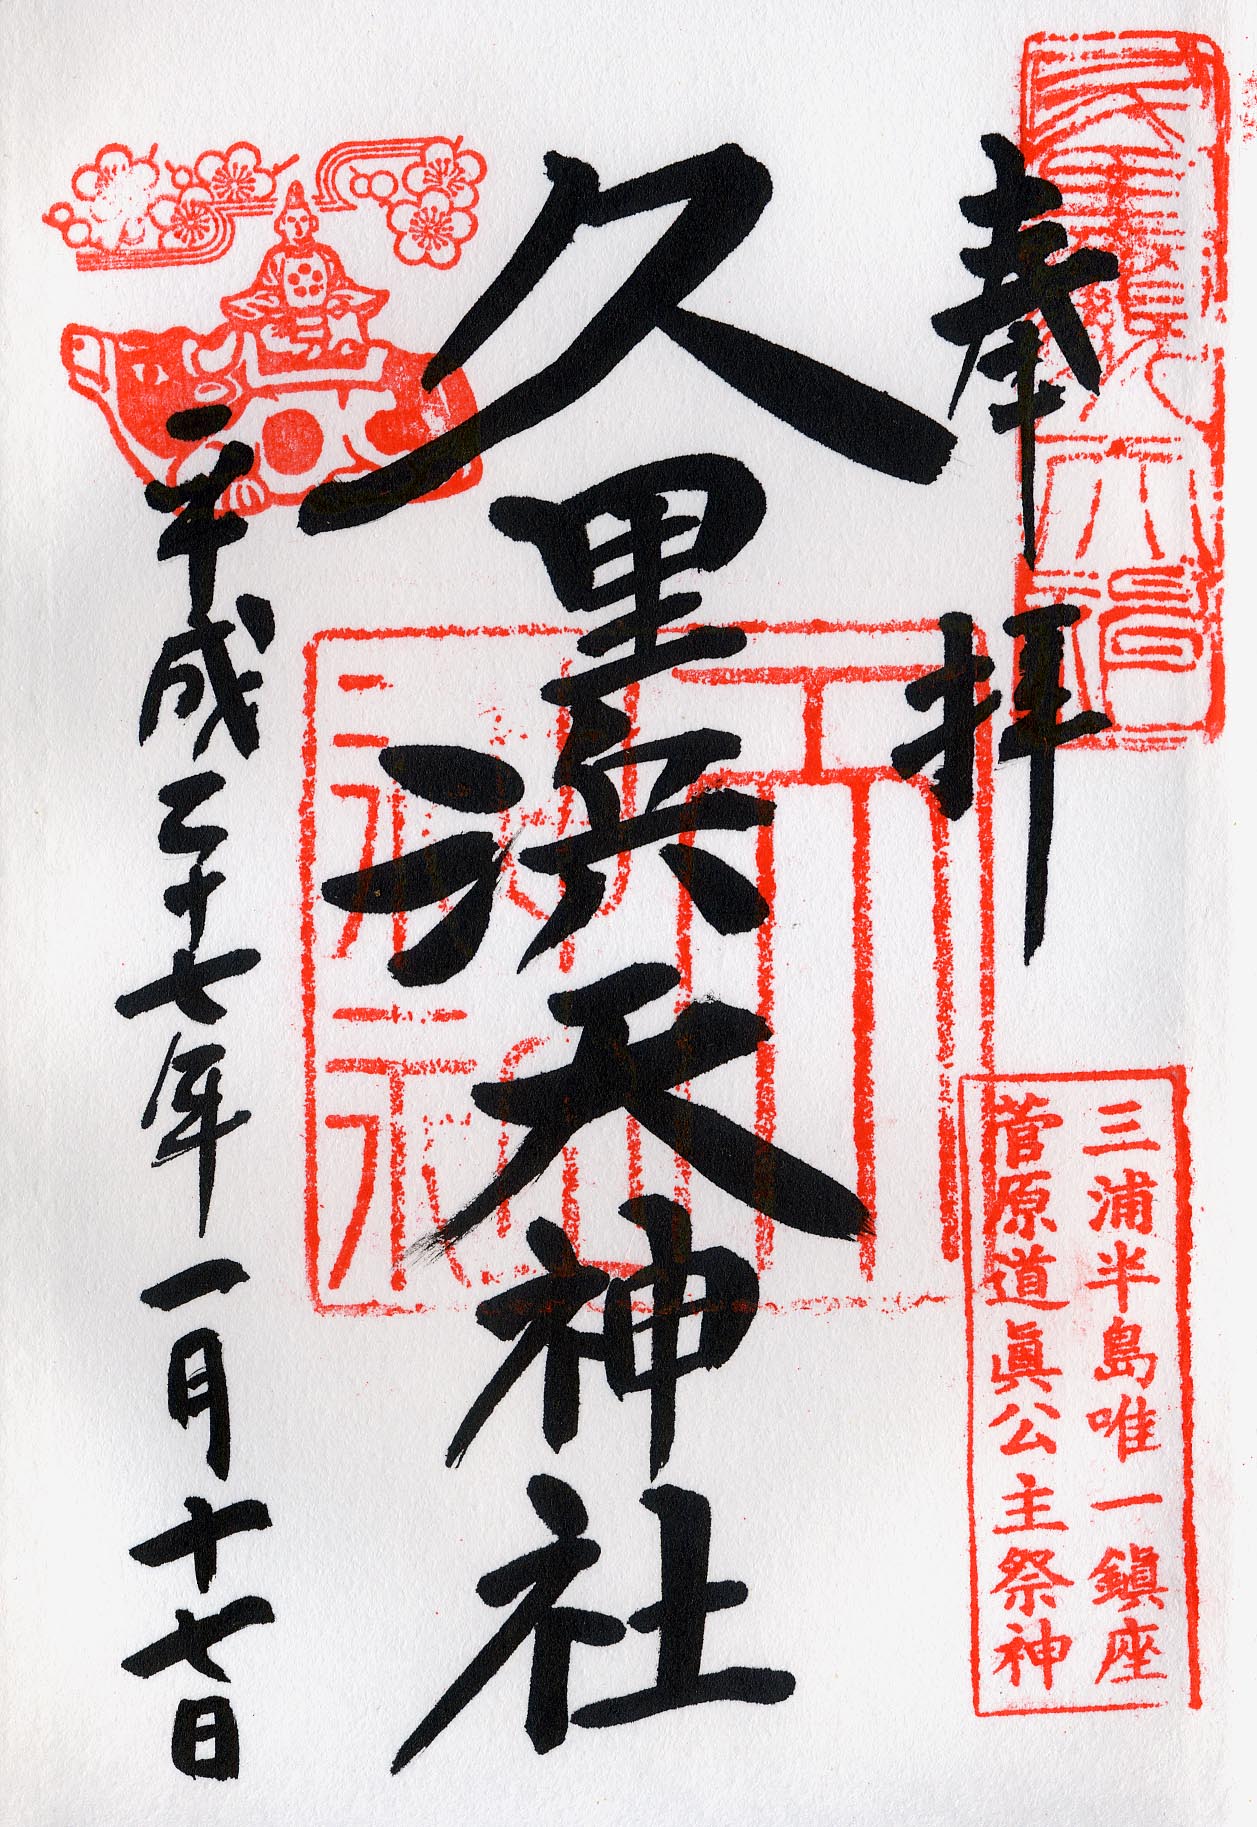 奉拝
三浦半島唯一鎮座
菅原道眞公主祭神
久里浜天神社
平成二十七年一月十七日